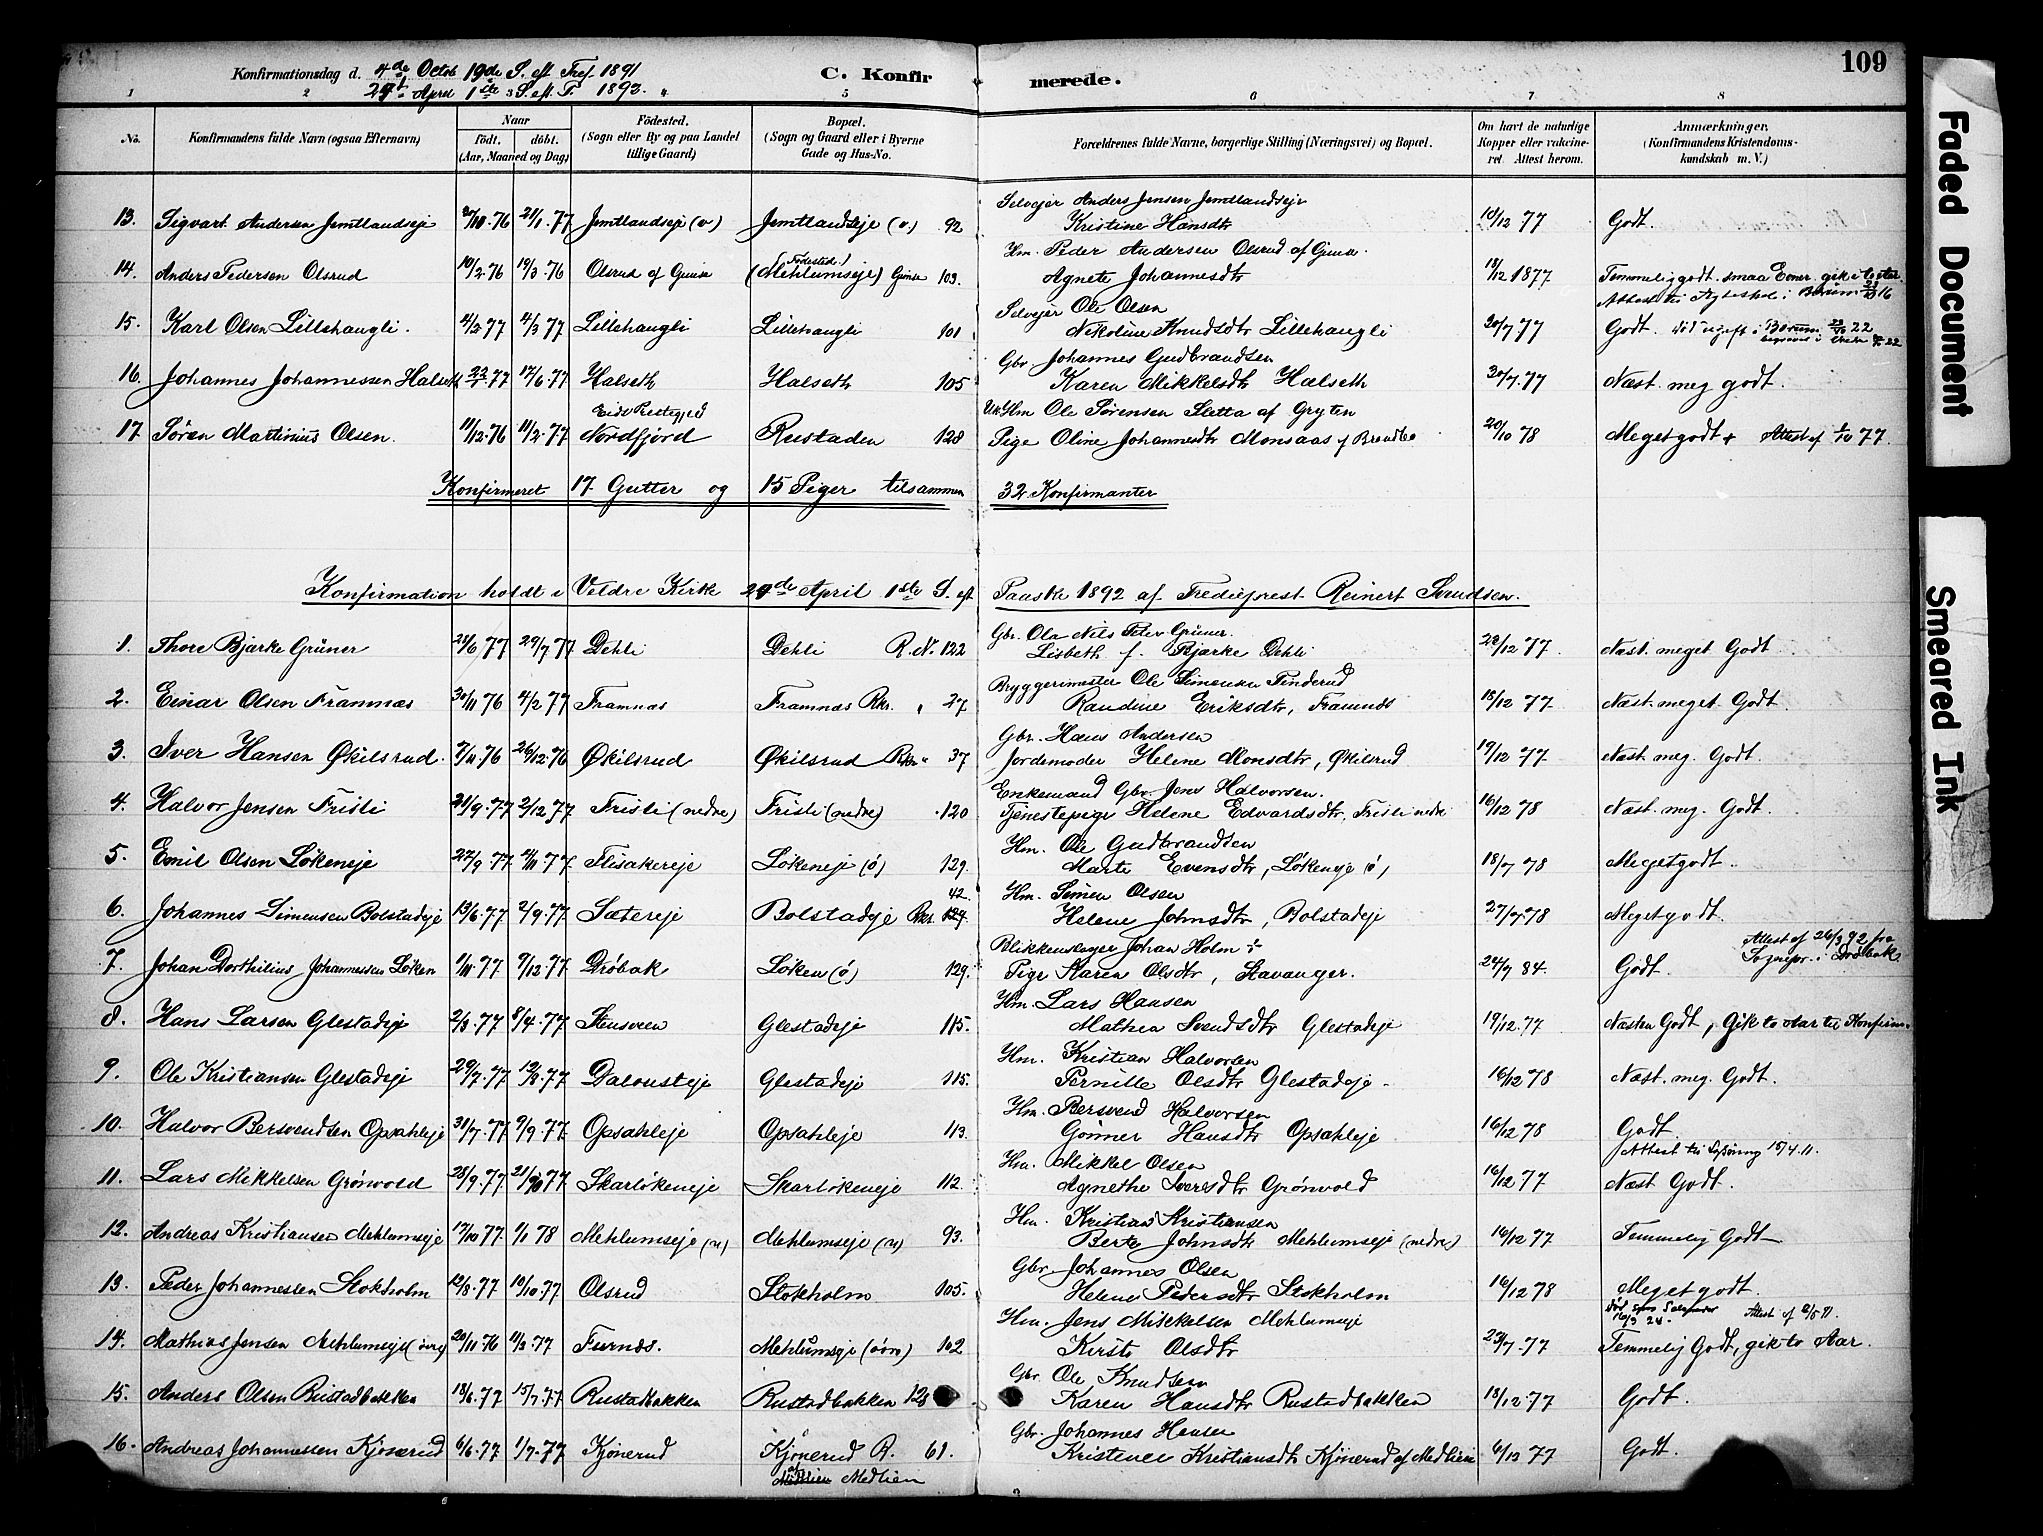 109
Konfirmationsdag d. 4de Octob 19de S. eft Tref. 1891
24de April 1ste S. eft. P. 1892.
C. Konfirmerede.
1 2 3 4 5 6 7 8
No. Konfirmandens fulde Navn (ogsaa Efternavn) Naar födt. döbt. (Aar, Maaned og Dag) Födested. (Sogn eller By og paa Landet tillige Gaard) Bopæl. (Sogn og Gaard eller i Byerne Gade og Hus-No. Forældrenes fulde Navne, borgerlige Stilling (Næringsvei) og Bopæl. Om havt de naturlige Kopper eller vakcineret. Attest herom. Anmærkninger. (Konfirmandens Kristendomskundskab m. V.)
Selvejer Anders Jensen Jemtlandseje
13. Sigvart Andersen Jemtlandseje 2/10.76 21/1.77 Jemtlandseje (v) Jemtlandseje (v.) 92 Kristine Hansdtr 10/12 77 Godt.
Hm. Peder Andersen Olsrud af Gjinse.
14. Anders Pedersen Olsrud 10/2.76 19/3.76 Olsrud af Gjinse (Födested) (Mehlumseje) Gjinse 103. Agnete Johannesdtr 18/12 1877 Temmelig godt. smaa Evner. gik i to Aar.
Selvejer Ole Olsen
15. Karl Olsen Lillehaugli. 4/2 77 4/3 77 Lillehaugli Lillehaugli 101 Nikoline Knudsdtr Lillehaugli 20/7 77 Godt.
Gbr. Johannes Gudbrandsen
16. Johannes Johannessen Halseth 22/4.77 17/6.77 Halseth Halseth 105 Karen Mikkelsdtr Halseth 30/7.77 Næst. meg godt.
Uk Hm Ole Sørensen Sletta af Gryten
17. Sören Martinius Olsen. 11/12.76 11/2.77 Eids Prestegjeld Nordfjord Rustaden 128 Pige Oline Johannesdtr Monsaas 20/10 78 Meget godt Attest af 77.
Konfirmeret 17 Gutter og 15 Piger tilsammen 32 Konfirmanter
Konfirmation holdt i Veldre Kirke 24de April 1ste S. eft Paaske 1892 af Tredieprest Reinert Svendsen.
Gbr. Ola Nils Peter Grüner.
1. Thore Bjarke Grüner 21/6 77 29/7 77 Dehli Dehli R. N. 122 Lisbeth f. Bjarke Dehli 22/12 77 Næst. meget Godt
Bryggerimester Ole Simensen Tinderud
2. Einar Olsen Framnæs 30/11 76 4/2 77 Framnæs Framnæs Rkr. 27 Randine Eriksdtr, Framnæs 18/12 77 Næst. meget. Godt.
Gbr. Hans Andersen
3. Iver Hansen Økilsrud. 7/11.76 26/12.76 Økilsrud Økilsrud Rkr 37 Jordemoder Helene Monsdtr, Økilsrud 19/12 77. Næst. meg. Godt.
Enkemand Gbr. Jens Halvorsen.
4. Halvor Jensen Fristi 21/9.77 2/12 77 Fristi (nedre) Fristi (nedre) 120 Tjenestepige Helene Edvardsdtr, Fristi nedre 16/12 78 Næst. meg. Godt.
Hm. Ole Gudbrandsen
5. Emil Olsen Løkeneje 27/9.77 4/11 77. Flisakereje Løkeneje (ø) 129. Marte Evensdtr, Løkeneje (ø) 18/7 78 Meget godt.
Hm. Simen Olsen
6. Johannes Simensen Bolstadeje 13/6.77 2/9.77. Sætereje Bolstadeje Rkr. 42. Helene Johnsdtr, Bolstadeje 27/7 78 Meget godt.
Blikkenslager Johan Holm Attest af 26/3 92 fra
7. Johan Dorthilius Johannessen Løken 1/11.77 9/12.77. Dröbak Løken (ø) 129. Pige Karen Olsdtr, Stavanger. 24/7 84. Godt. Sognepr. i Dröbak
Hm. Lars Hansen
8. Hans Larsen Glestadeje 2/3.77 8/4.77. Stensveen Glestadeje 115. Mathea Svendsdtr Glestadeje 19/12.77 Næsten Godt, gik to Aar til Konfirm.
Hm. Kristian Halvorsen
9. Ole Kristiansen Glestadeje 29/7.77 12/8.77. Dalousteje Glestadeje 115. Pernille Olsdtr Glestadeje 16/12 78 Næst. meg. Godt.
Hm. Bersvend Halvorsen
10. Halvor Bersvendsen Opsahleje 31/7.77 9/9.77. Opsahleje Opsahleje 113. Gönner Hansdtr Opsahleje 16/12 78 Godt.
Hm. Mikkel Olsen Attest til Lysning 18/4.11.
11. Lars Mikkelsen Grönvold 28/9.77 21/10 77 Skarløkeneje Skarløkeneje 112. Agnethe Iversdtr Grönvold 16/12 77 Næst Godt.
Hm. Kristian Kristiansen
12. Andreas Kristiansen Mehlumseje 17/10 77 1/1 78 Mehlumseje (n) Mehlumseje (n) 93. Berte Johnsdtr Mehlumseje (nedre) 16/12 77 Temmelig Godt
Gbr. Johannes Olsen
13. Peder Johannessen Stokholm 12/8.77 10/10.77 Olsrud Stokholm 105. Helene Pedersdtr Stokholm 16/12 78 Meget godt.
Hm. Jens Mikkelsen Mehlumseje
14. Mathias Jensen Mehlumseje (övre) 20/11 76 11/3.77 Furnæs. Mehlumseje (övre) 102 Kirsti Olsdtr 23/7.77 Temmelig Godt, gik to Aar.
Gbr. Ole Knudsen
15. Anders Olsen Rustadbakken 18/6.77 15/7.77 Rustadbakken Rustadbakken 128 Karen Hansdtr Rustadbakken 18/12.77 Godt.
Gbr. Johannes Hansen
16. Andreas Johannessen Kjönerud 6/6.77 1/7.77 Kjönerud Kjönerud R. 61. Kristence Kristiansdtr Kjönerud af Medlien 6/12 77 Godt.
af Medlien
Faded Document
Smeared Ink